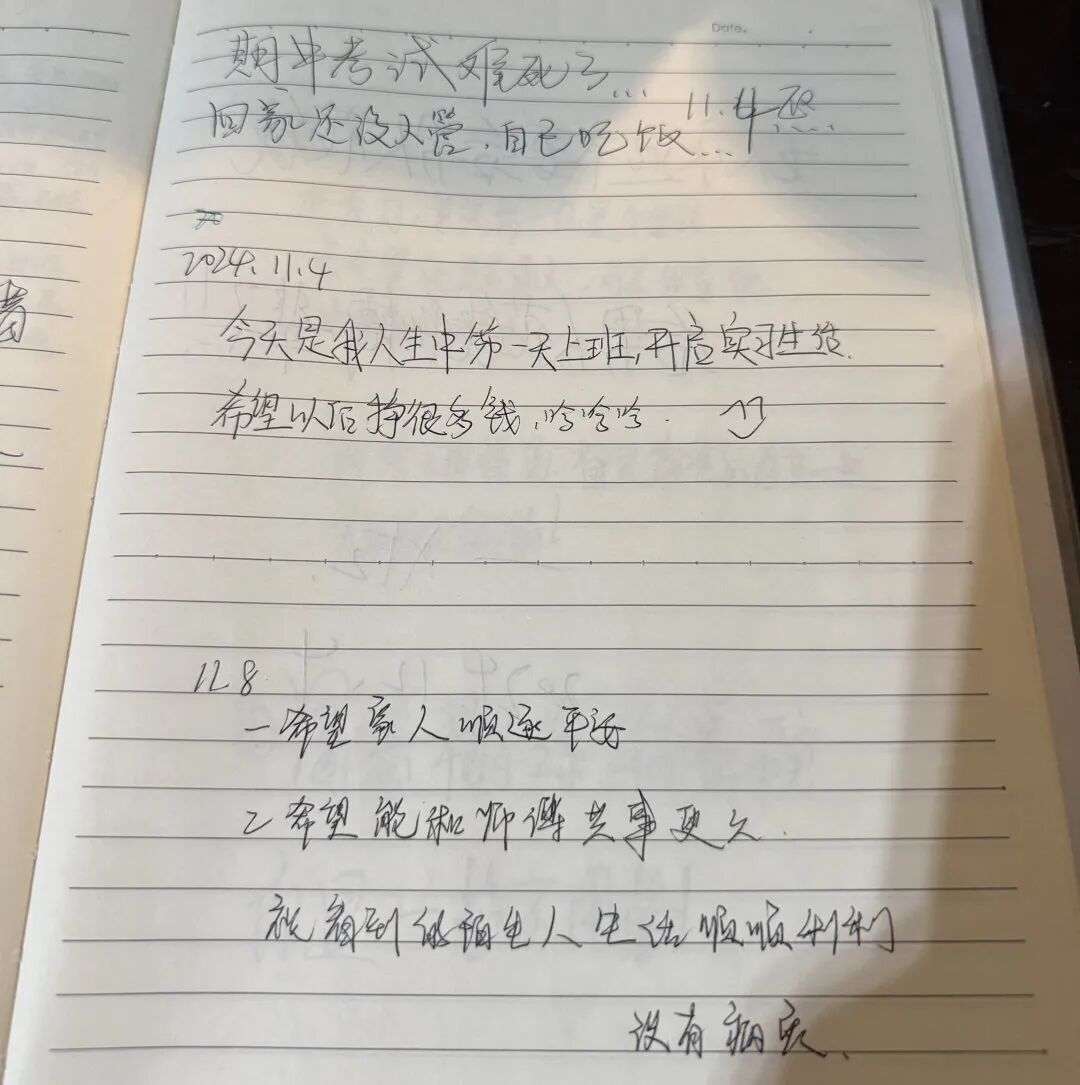 Date.
期中考试难死了...
11.4
回家还没人管,自己吃饭...
2024.11.4
今天是我人生中第一天上班,开启实习生活.
希望以后挣很多钱,哈哈哈.
11.8
一希望家人顺遂平安
2希望能和师傅共事更久.
祝看到的陌生人生活顺顺利利
没有病灾.
者